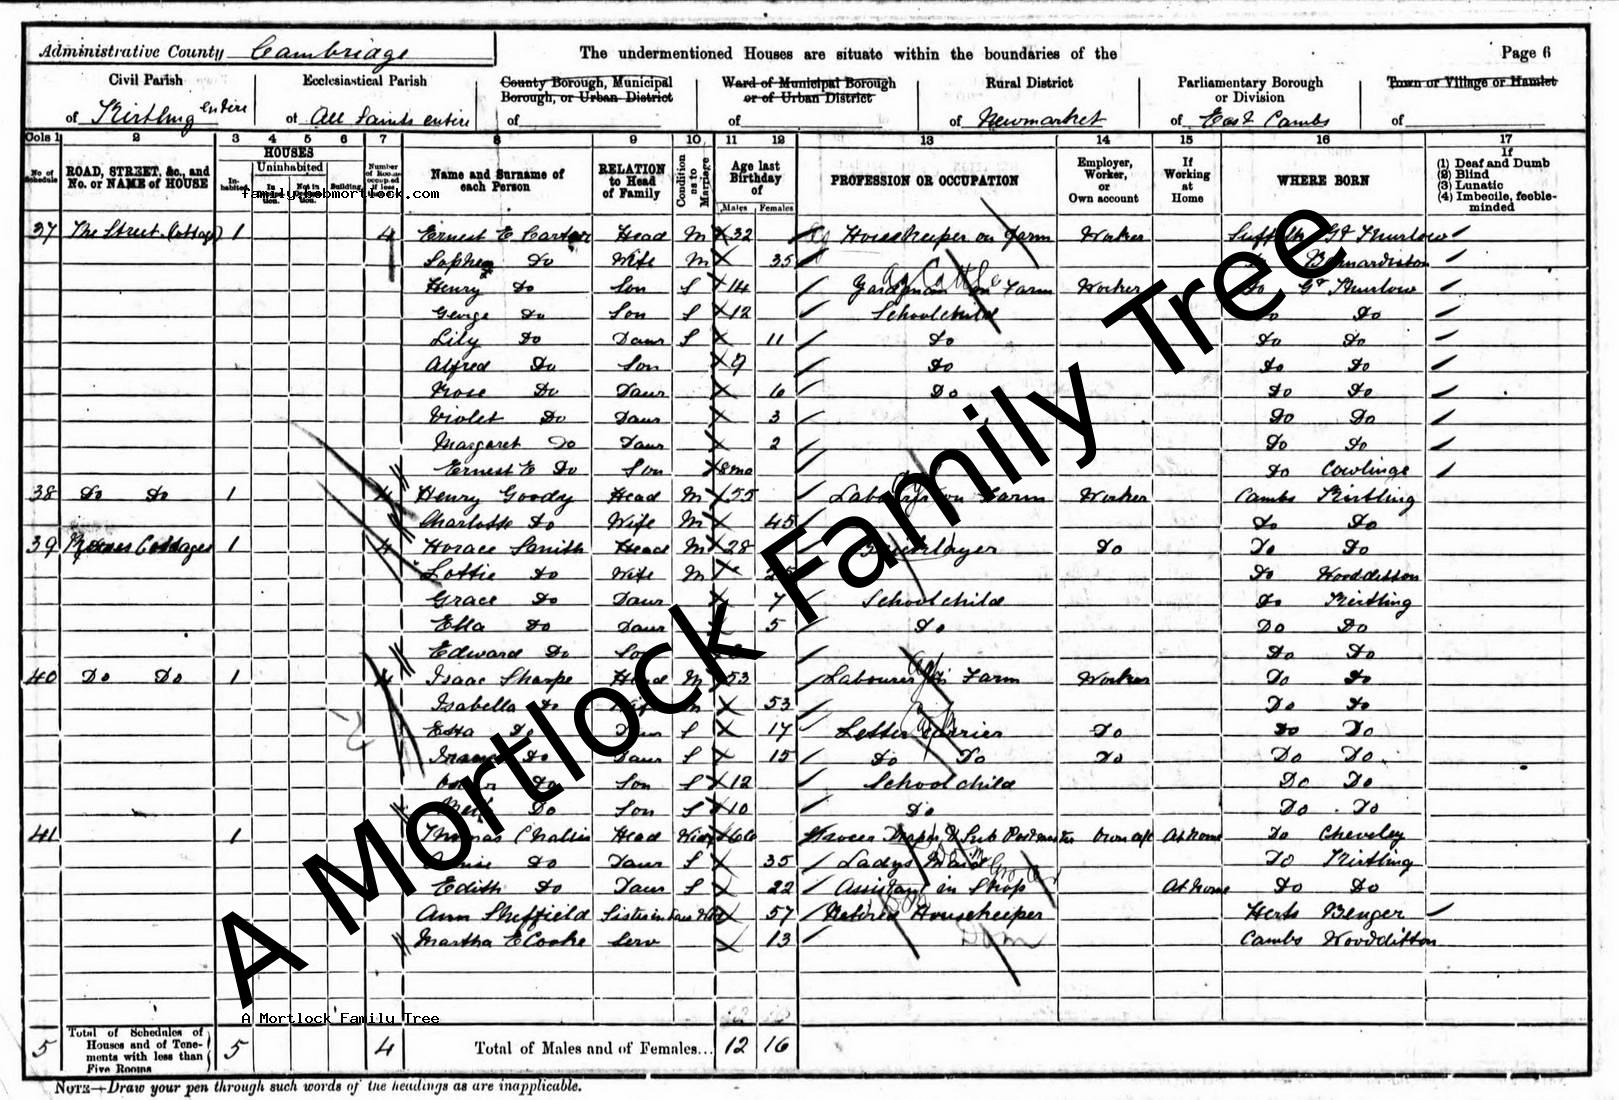 Administrative County Cambridge
The undermentioned Houses are situate within the boundaries of the
Page 6
Civil Parish
of Kirtling entire
Ecclesiastical Parish
of All Saints entire
County Borough, Municipal
Borough, or Urban District
of
Ward of Municipal Borough
or of Urban District
of
Rural District
of Newmarket
Parliamentary Borough
or Division
of East Cambs
Town or Village or Hamlet
of
Cols 1 2 3 4 5 6 7 8 9 10 11 12 13 14 15 16 17
No. of Schedule
ROAD, STREET, &c., and
No. or NAME of HOUSE
HOUSES
In-habited
Uninhabited
Building
Name and Surname of
each Person
RELATION
to Head
of Family
Condition as to Marriage
Age last
Birthday
of
Males Females
PROFESSION OR OCCUPATION
Employer,
Worker,
or
Own account
If
Working
at
Home
WHERE BORN
If
(1) Deaf and Dumb
(2) Blind
(3) Lunatic
(4) Imbecile, feeble-
minded
family@bobmortlock.com
37 The Street 1 4 Ernest E Head M 32 on Farm Worker Suffolk Gt Thurlow
Do Wife M 35
Henry Do Son S 14 on Farm Worker Do Gt Thurlow
George Do Son S 12 Schoolchild Do Do
Lily Do Daur S 11 Do Do Do
Alfred Do Son 9 Do Do Do
Rose Do Daur 6 Do Do Do
Violet Do Daur 3 Do Do
Margaret Do Daur 2 Do Do
Ernest E Do Son 8 mo Do Cowlinge
38 Do Do 1 4 Henry Goody Head M 55 on Farm Worker Cambs Kirtling
Charlotte Do Wife M 45 Do Do
39 Cottages 1 4 Horace Smith Head M 28 Bricklayer Do Do Do
Lottie Do Wife M Do Woodditton
Grace Do Daur 7 Schoolchild Do Kirtling
Ella Do Daur 5 Do Do Do
Edward Do Son Do Do
40 Do Do 1 4 Isaac Sharpe Head M 53 Labourer on Farm Worker Do Do
Isabella Do Wife M 53 Do Do
Etta Do Daur S 17 Letter Carrier Do Do Do
Do Daur S 15 Do Do Do Do Do
Do Son S 12 Schoolchild Do Do
Do Son S 10 Do Do Do
41 1 Thomas Challis Head Widr 66 Grocer Draper & Sub Postmaster Own a/c At home Do Cheveley
Do Daur S 35 Ladys Maid Do Kirtling
Edith Do Daur S 22 Assistant in Shop At home Do Do
Ann Sheffield Sister in law Wid 57 Retired Housekeeper Herts
Martha E Cooke Serv 13 Cambs Woodditton
A Mortlock Family Tree
A Mortlock Family Tree
5
Total of Schedules of
Houses and of Tene-
ments with less than
Five Rooms
5 4 Total of Males and of Females... 12 16
NOTE—Draw your pen through such words of the headings as are inapplicable.